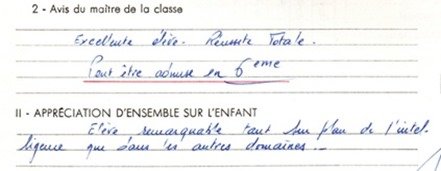 2 - Avis du maître de la classe
Excellente élève. Réussite Totale.
Peut être admise en 6ème
II - APPRÉCIATION D'ENSEMBLE SUR L'ENFANT
Elève remarquable tant sur plan de l'intel-
ligence que dans les autres domaines.-